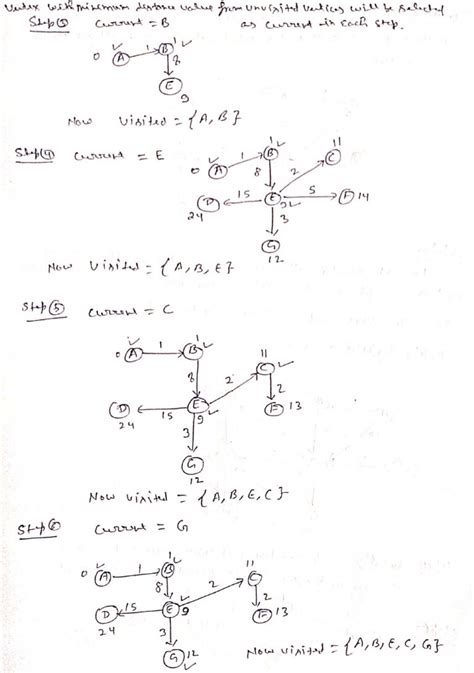 Vertex with minimum distance value from unvisited vertices will be selected
as current in each step.
Step ③ current = B
0 A 1 B 1
8
E
9
Now visited = {A, B}
Step ④ current = E
11
0 A 1 B 1 C
8 2
D 15 E 5 F 14
24 9
3
G
12
Now visited = {A, B, E}
Step ⑤ current = C
0 A 1 B 1
11
8 2 C
2
D 15 E F 13
24 9
3
G
12
Now visited = {A, B, E, C}
Step ⑥ current = G
0 A 1 B 1 11
8 2 C
D 15 E 9 2
24 F 13
3
G 12
Now visited = {A, B, E, C, G}